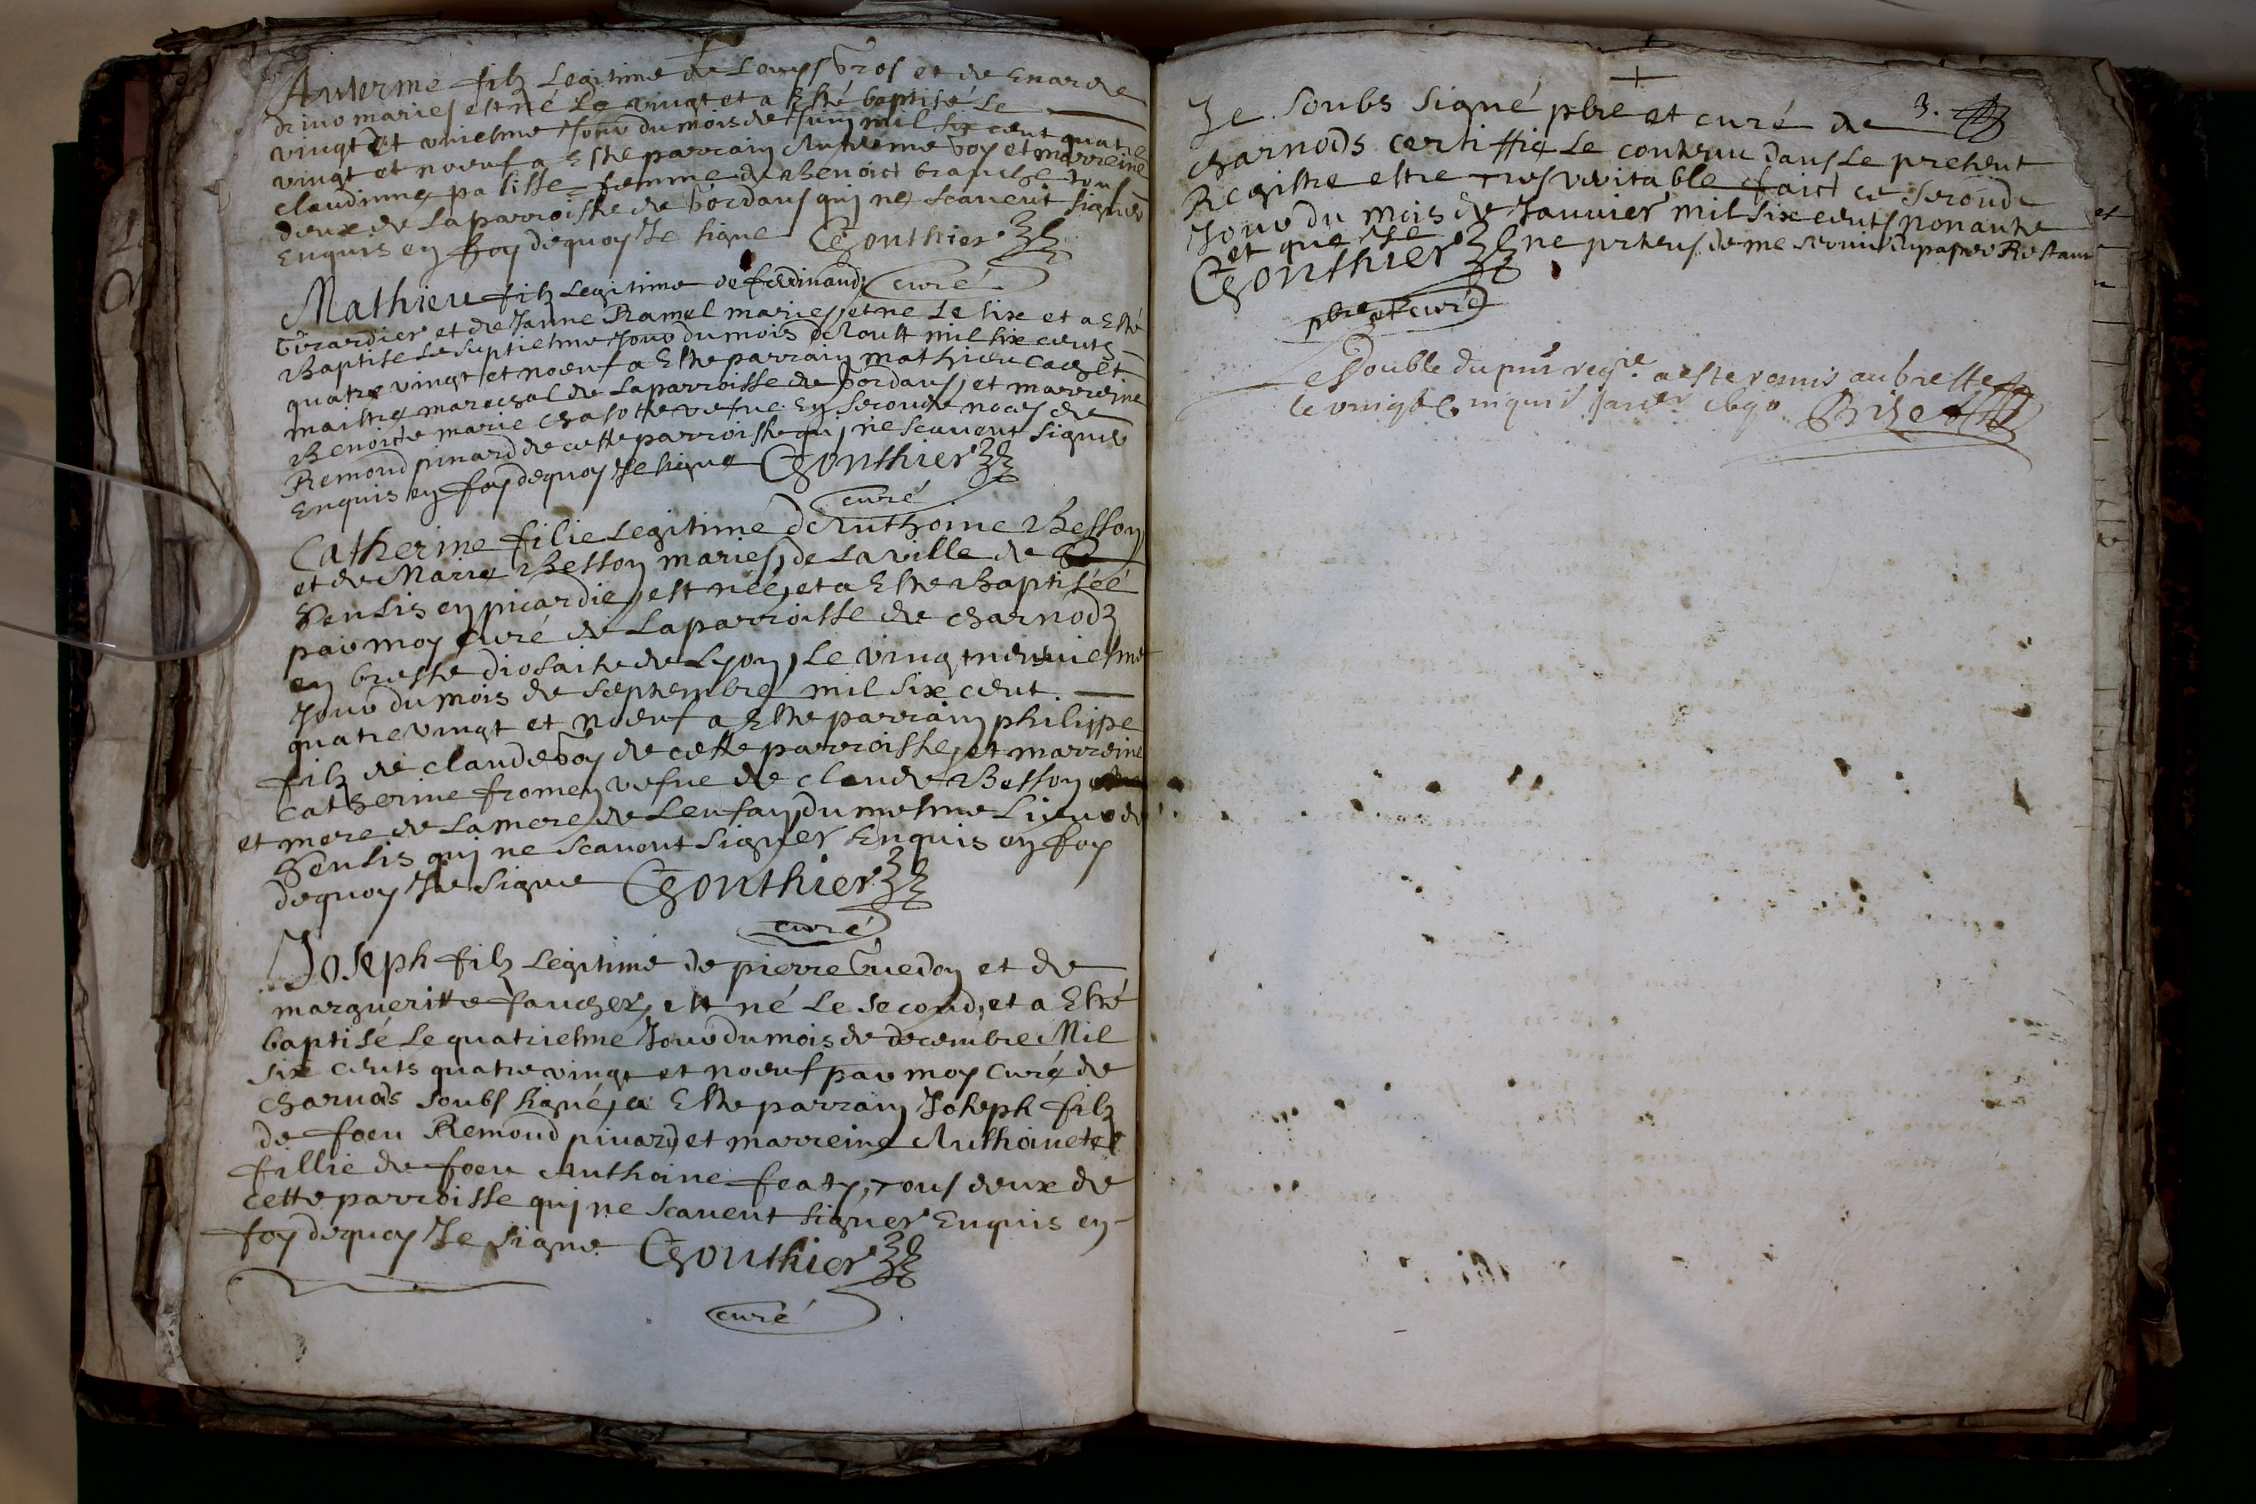 Anterme filz Legitime de Louys Gros et de Enarde
mariés est né Le vingt et a Esté baptisé Le
vingt Et uniesme Jour du mois de Juin mil six cent quatre
vingt et noeuf a Esté parrain Anterme voy et marreine
claudinne palisse femme de Benoict branche tous
deux de La parroisse de qui ne scavent signer
Enquis en foy dequoy Je signe CGonthier
curé
Mathieu filz Legitime de ferdinand
Girardier et de Janne Ramel mariés, est ne Le six et a Esté
Baptisé Le septiesme Jour du mois d'Aoust mil six cents
quatre vingt et noeuf a Esté parrain mathieu
maistre marechal de La parroisse de et marreine
Benoicte marie vefve En seconde noces de
Remond pinard de cette parroisse qui ne scavent signer
Enquis en foy dequoy Je signe CGonthier
curé
Catherine fillie Legitime d'Anthoine Besson
et de Marie Besson mariés, de La ville de
Senlis en picardie, est née, et a Esté Baptiséé
par moy Curé de La parroisse de charnodz
en bresse diosaise de Lyon, Le vingtneuviesme
Jour du mois de septembre mil six cent
quatre vingt et noeuf a Esté parrain philippe
filz de claude voy de cette parroisse, et marreine
catherine fromen vefve de claude Besson
et mere de La mere de L'enfan, du mesme Lieu de
Senlis qui ne scavent signer Enquis en foy
dequoy Je signe CGonthier
curé
Joseph filz Legitime de pierre Guedon et de
margueritte faucher, est né Le second, et a Esté
baptisé Le quatriesme Jour du mois de decembre Mil
six cents quatre vingt et noeuf par moy Curé de
charnods soubs signé, a Esté parrain Joseph filz
de foeu Remond pinard, et marreine Anthoinete
fillie de foeu Anthoine featy, tous deux de
cette parroisse qui ne scavent signer Enquis en
foy dequoy Je signe CGonthier
curé
3.
Je soubs signé pbre et curé de
charnods certiffie Le contenu dans Le present
Registre estre tres veritable faict ce second
Jour du mois de Janvier mil six cents nonante
et que Je ne pretens de me servir du papier Restant
CGonthier
pbre et curé
Le Double du pnt regre a esté remis au greffe
le vingt Cinquie Janer 1690